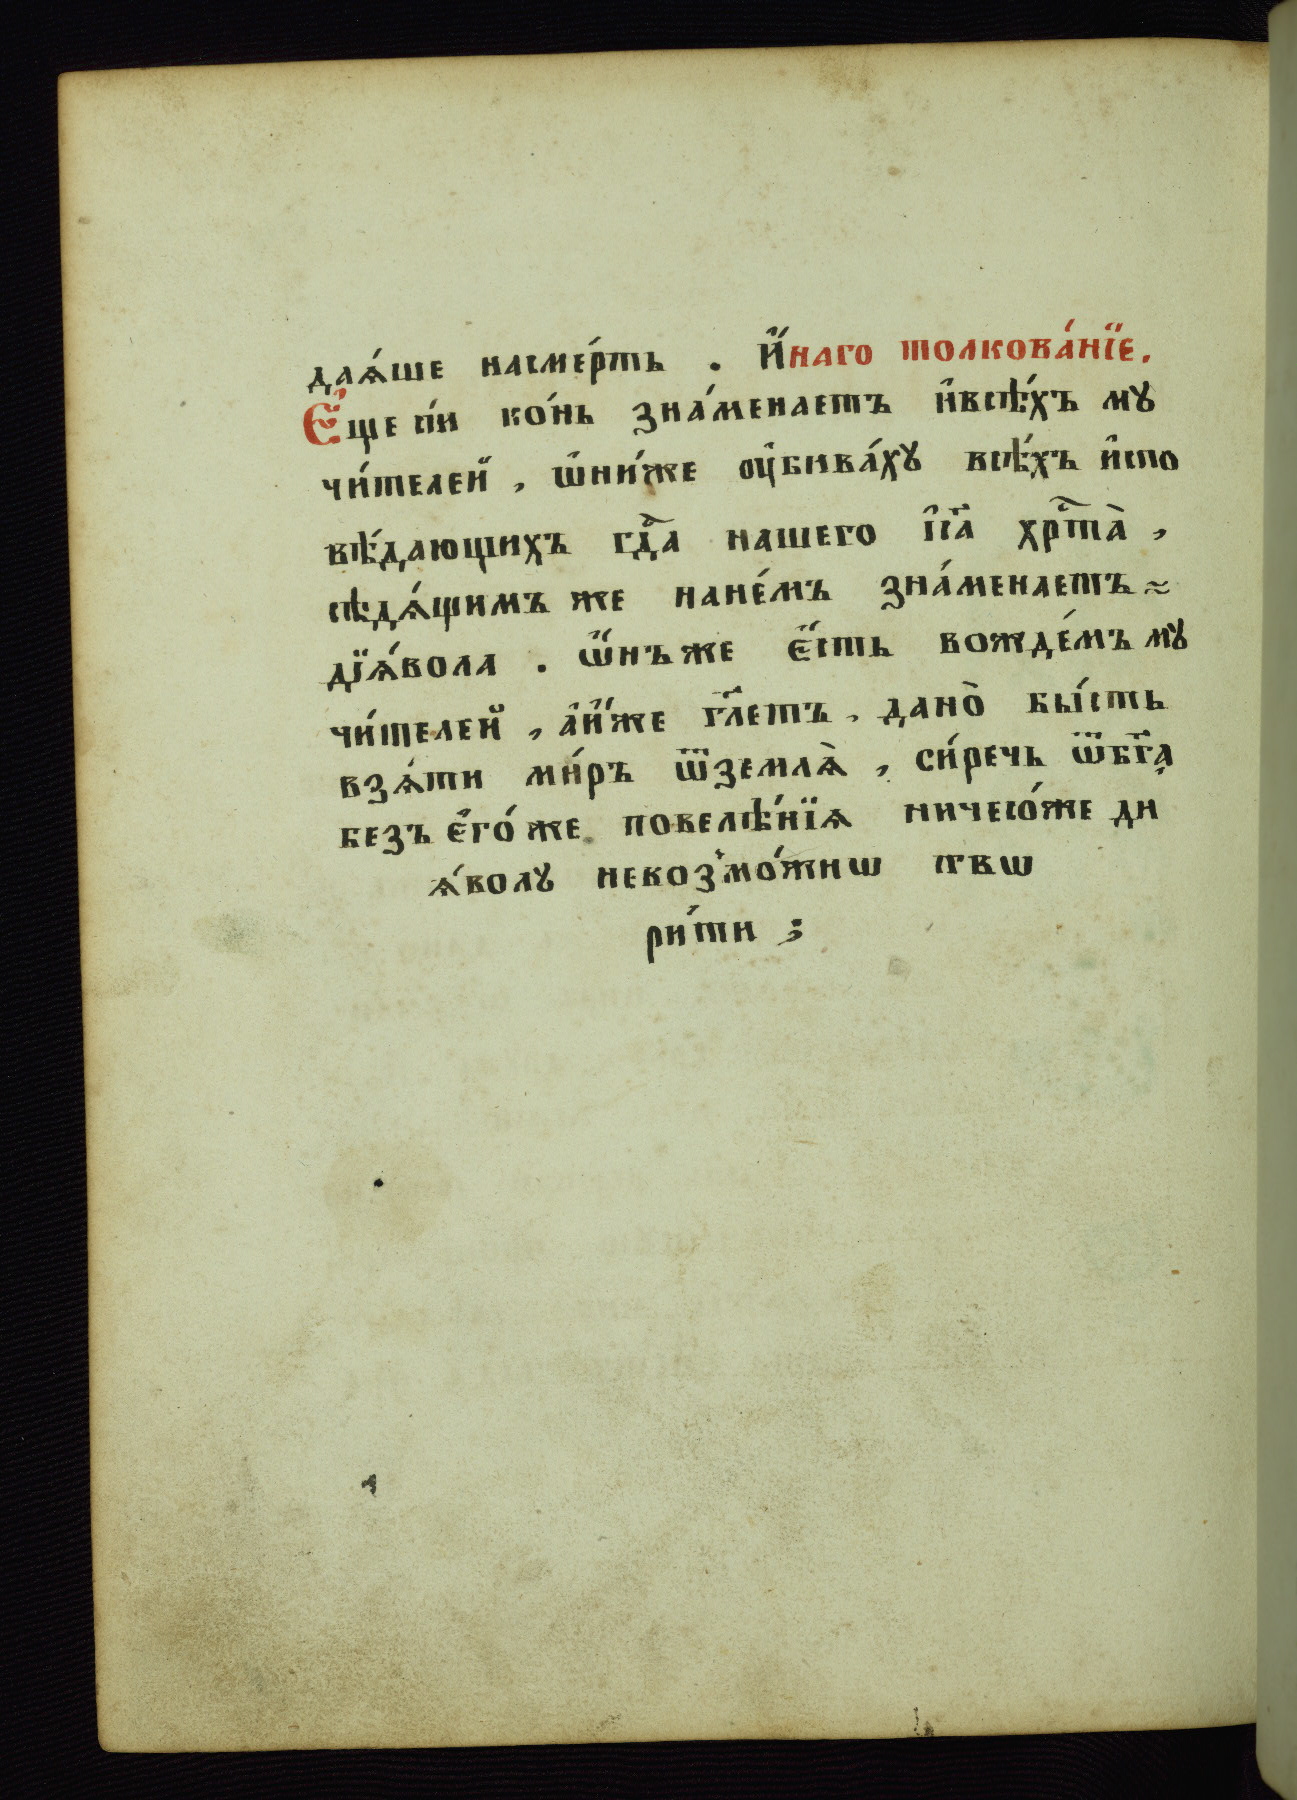 даѧ́ше насме́рть . И҆́наго толкова́нїе.
Е҆́ще се́й ко́нь зна́менаетъ и҆всѣ́хъ мꙋ
чи́телей , ѿни́же оу҆бива́хꙋ всѣ́хъ и҆спо
вѣ́дающихъ гдⷭ҇а нашего і҆с҃а хрⷭ҇та̀ ,
сѣдѧ́щимъ же нане́мъ зна́менаетъ ~
дїѧ́вола . ѡ҆́нъже є҆́сть вожде́мъ мꙋ
чи́телей , а҆и҆́же гл҃етъ . дано̀ бы́сть
взѧ́ти ми́ръ ѿземлѧ̀ , си́речь ѿбг҃а
безъ є҆го́же повелѣ́нїѧ ничесо́же ди
ѧ́волꙋ невозмо́жнѡ сътвѡ
ри́ти ;